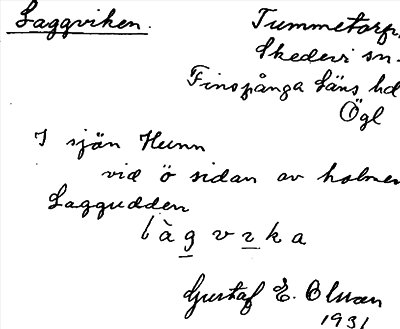 Laggviken.
Tummetorp,
Skedevi sn.
Finspånga läns hd
Ögl
I sjön Hunn
vid ö sidan av holmen
Laggudden
làgvıka
Gustaf E. Olsson
1931